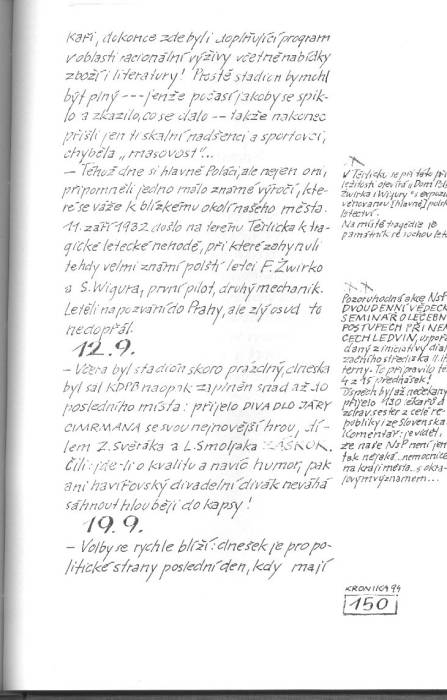 kaři, dokonce zde byli doplňující program
v oblasti racionální výživy včetně nabídky
zboží i literatury! Prostě stadion by mohl
být plný --- jenže počasí jakoby se spik-
lo a zkazilo, co se dalo -- takže nakonec
přišli jen ti skalní nadšenci a sportovci,
chyběla „masovost"...
- Téhož dne si hlavně Poláci, ale nejen oni,
připomněli jedno málo známé výročí, kte-
ré se váže k blízkému okolí našeho města.
11. září 1932 došlo na terénu Těrlicka k tra-
gické letecké nehodě, při které zahynuli
tehdy velmi známí polští letci F. Żwirko
a S. Wigura, první pilot, druhý mechanik.
Letěli na pozvání do Prahy, ale zlý osud to
nedopřál.
12.9.
- Včera byl stadion skoro prázdný, dneska
byl sál KDPB naopak zaplněn snad až do
posledního místa: přijelo DIVADLO JÁRY
CIMRMANA se svou nejnovější hrou, dí-
lem Z. Svěráka a L. Smoljaka ZÁSKOK.
Čili: jde-li o kvalitu a navíc humor, pak
ani havířovský divadelní divák neváhá
sáhnout hlouběji do kapsy!
19.9.
- Volby se rychle blíží: dnešek je pro po-
litické strany poslední den, kdy mají
x
V Těrlicku se při této pří
ležitosti otevírá „Dům Pol
Żwirka i Wigury" s expozi
věnovanou [hlavně] pols
letectví.
Na místě tragédie je
památník se sochou let
x x
Pozoruhodná akce NsP
DVOUDENNÍ VĚDECK
SEMINÁŘ O LÉČEBN
POSTUPECH PŘI NEM
CECH LEDVIN, uspořá
daný z iniciativy dial
začního střediska II. in
terny. To připravilo té
4 z 15 přednášek!
Úspěch byl až nečekaný
přijelo 130 lékařů a
zdrav. sester z celé re-
publiky i ze Slovenska
Komentář: je vidět,
že naše NsP není jen
tak nějaká...nemocnice
na kraji města...s okra-
jovým významem...
KRONIKA 94
150